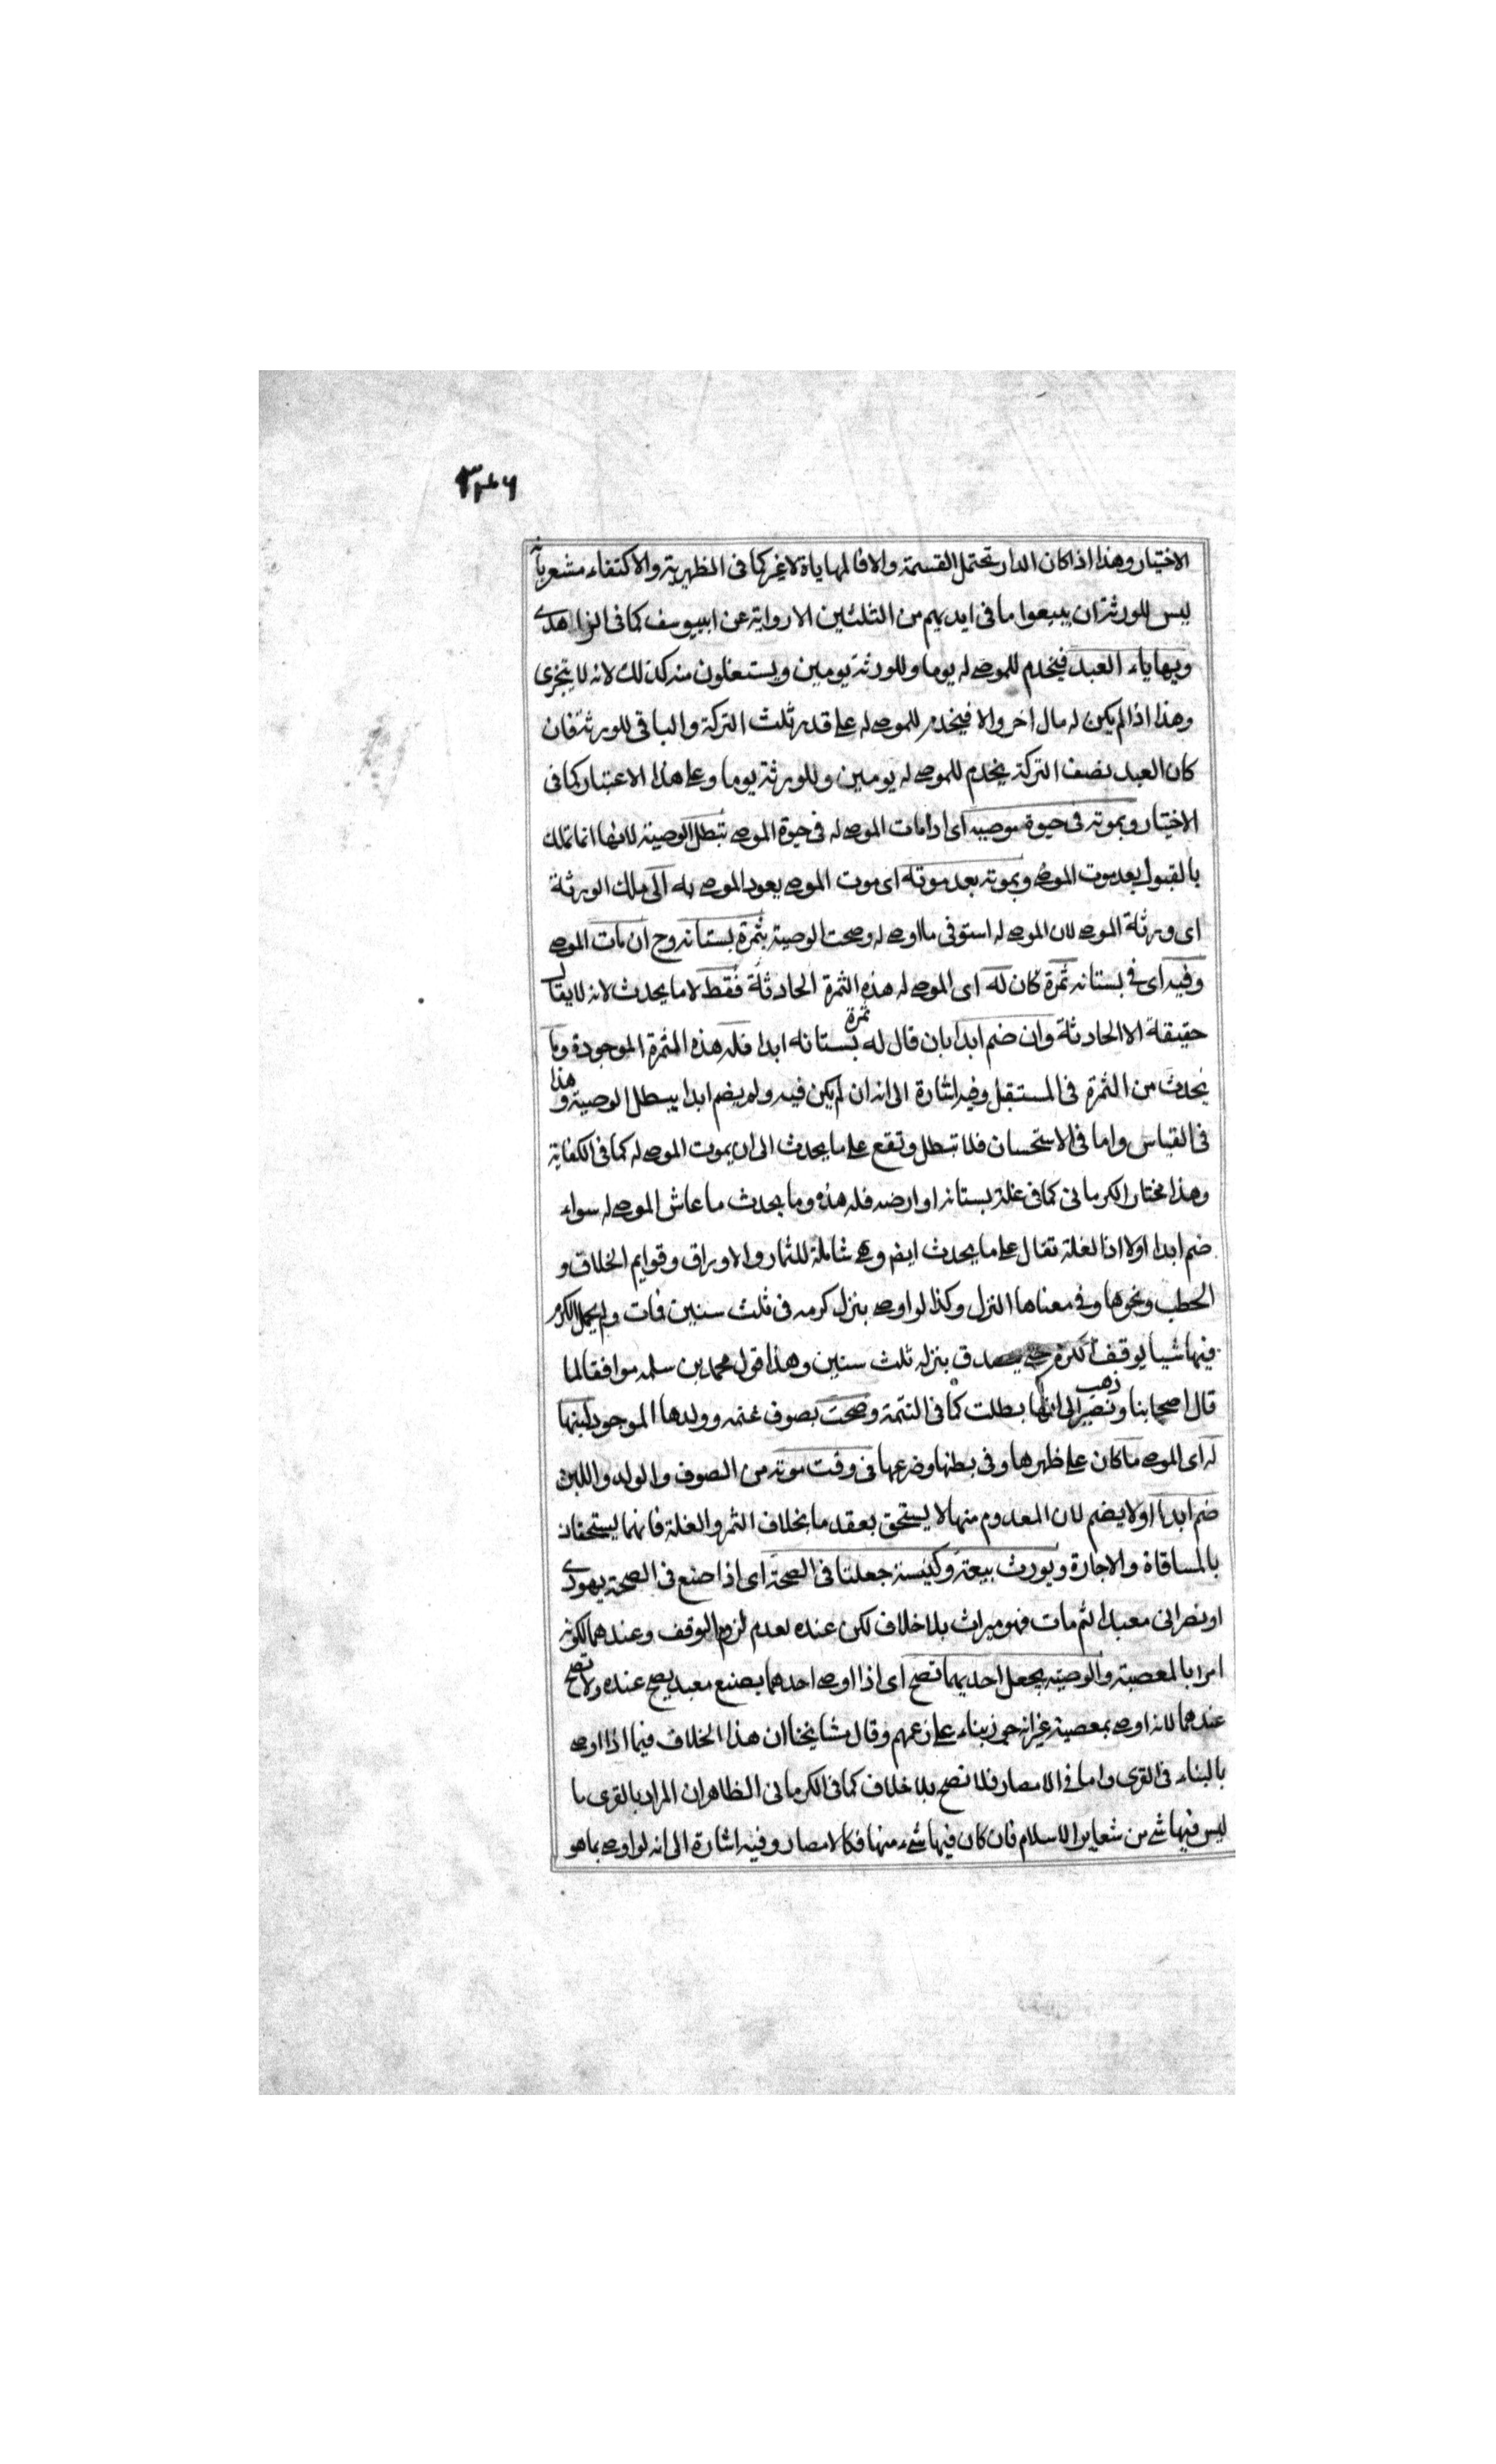 ٣٤٦
الاختيار وهذا اذا كان الدار تحتمل القسمة والا فالمهاياة لا غير كما فى الظهيرية والاكتفاء مشعر بان
ليس للورثة ان يبيعوا ما فى ايديهم من الثلثين الا رواية عن ابييوسف كما فى الزاهدى
ويهاياء العبد فيخدم للموصى له يوما وللورثة يومين ويستغلون منه كذلك لانه لا يتجزى
وهذا اذا لم يكن له مال اخر والا فيخدم للموصى له على قدر ثلث التركة والباقى للورثة فان
كان العبد نصف التركة يخدم للموصى له يومين وللورثة يوما وعلى هذا الاعتبار كما فى
الاختيار وبموته فى حيوة موصيه اى اذا مات الموصى له فى حيوة الموصى تبطل الوصية لانها انما تملك
بالقبول بعد موت الموصى وبموته بعد موته اى موت الموصى يعود الموصى به الى ملك الورثة
اى ورثة الموصى لان الموصى له استوفى ما اوصى له وصحت الوصية بثمرة بستانه وح ان مات الموصى
وفيه اى فى بستانه ثمرة كان له اى الموصى له هذه الثمرة الحادثة فقط لا ما يحدث لانه لا يقال
حقيقة الا الحادثة وان ضم ابدا بان قال له ثمرة بستانه ابدا فله هذه الثمرة الموجودة وما
يحدث من الثمرة فى المستقبل وفيه اشارة الى انه ان لم يكن فيه ولم يضم ابدا يبطل الوصية وهذا
فى القياس واما فى الاستحسان فلا تبطل وتقع على ما يحدث الى ان يموت الموصى له كما فى الكفاية
وهذا مختار الكرمانى كما فى غلة بستانه او ارضه فله هذه وما يحدث ما عاش الموصى له سواء
ضم ابدا اولا اذ الغلة تقال على ما يحدث ايضا وهى شاملة للثمار والاوراق وقوايم الخلاف و
الحطب ونحوها وفى معناها النزل وكذا لو اوصى بنزل كرمه فى ثلث سنين فات ولم يحمل الكرم
فيها شيا يوقف الكرم حتى يصدق بنزله ثلث سنين وهذا قول محمد بن سلمه موافقا لما
قال اصحابنا ونصير ذهب الى انها بطلت كما فى التتمة وصحت بصوف غنمه وولدها الموجود لبنها
له اى الموصى ما كان على ظهرها وفى بطنها وضرعها فى وقت موته من الصوف والولد واللبن
ضم ابدا اولا يضم لان المعدوم منها لا يستحق بعقد ما بخلاف الثمر والغلة فانهما يستحقان
بالمساقاة والاجارة ويورث بيعة وكنيسة جعلتا فى الصحة اى اذا صنع فى الصحة يهودى
او نصرانى معبدا ثم مات فهو ميراث بلا خلاف لكن عنده لعدم لزوم الوقف وعندهما لكونه
امرا بالمعصية والوصية بجعل احديهما تصح اى اذا اوصى احدهما بصنع معبد يصح عنده ولا تصح
عندهما لانه اوصى بمعصية غير انه جوز بناء على زعمهم وقال مشايخنا ان هذا الخلاف فيما اذا اوصى
بالبناء فى القرى واما فى الامصار فلا تصح بلا خلاف كما فى الكرمانى الظاهر ان المراد بالقرى ما
ليس فيها شى من شعاير الاسلام فان كان فيها شىء منها فكالامصار وفيه اشارة الى انه لو اوصى بما هو